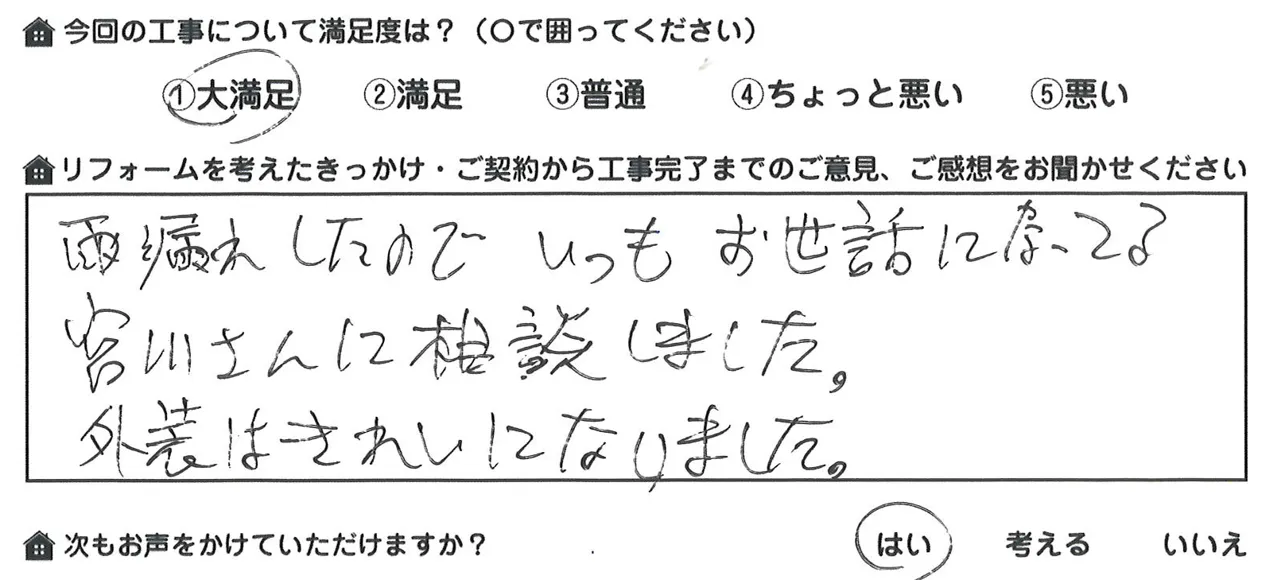 今回の工事について満足度は？（〇で囲ってください）
①大満足 ②満足 ③普通 ④ちょっと悪い ⑤悪い
リフォームを考えたきっかけ・ご契約から工事完了までのご意見、ご感想をお聞かせください
雨漏れしたので いつも お世話になってる
宮川さんに相談しました。
外装はきれいになりました。
次もお声をかけていただけますか？ はい 考える いいえ